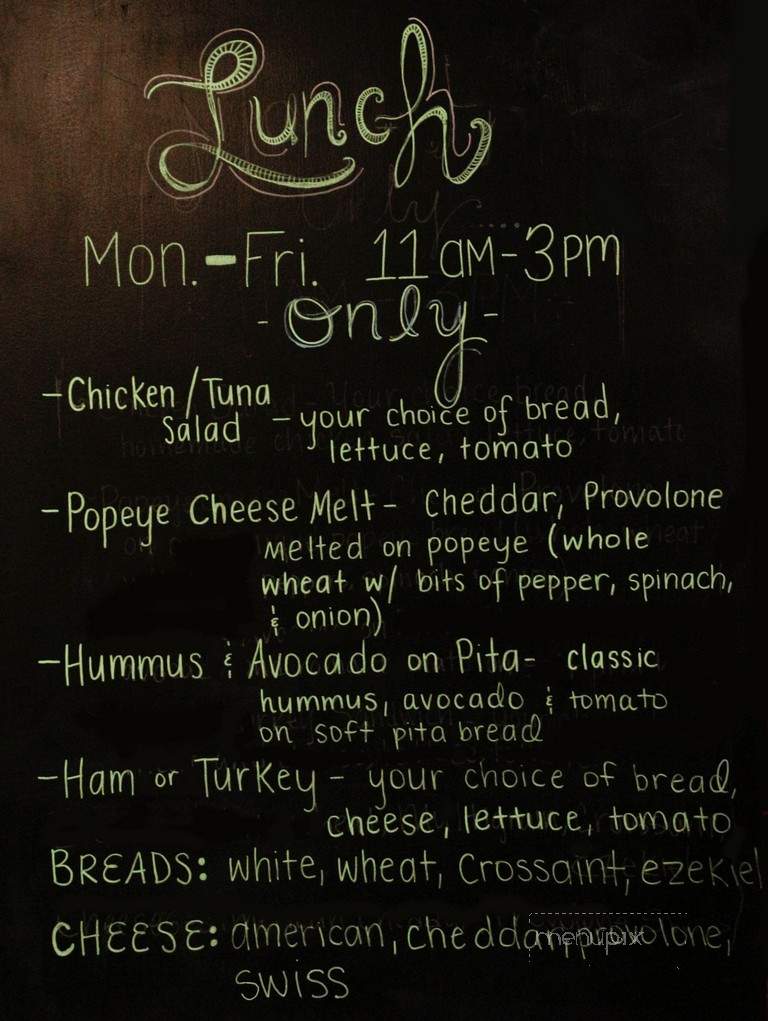 Lunch
Mon.-Fri. 11am-3pm
-only-
-Chicken/Tuna
Salad -your choice of bread,
lettuce, tomato
-Popeye Cheese Melt- Cheddar, Provolone
melted on popeye (whole
wheat w/ bits of pepper, spinach,
& onion)
-Hummus & Avocado on Pita- classic
hummus, avocado & tomato
on soft pita bread
-Ham or Turkey- your choice of bread,
cheese, lettuce, tomato
BREADS: white, wheat, Crossaint, ezekiel
CHEESE: american, cheddar, provolone,
swiss
menupix